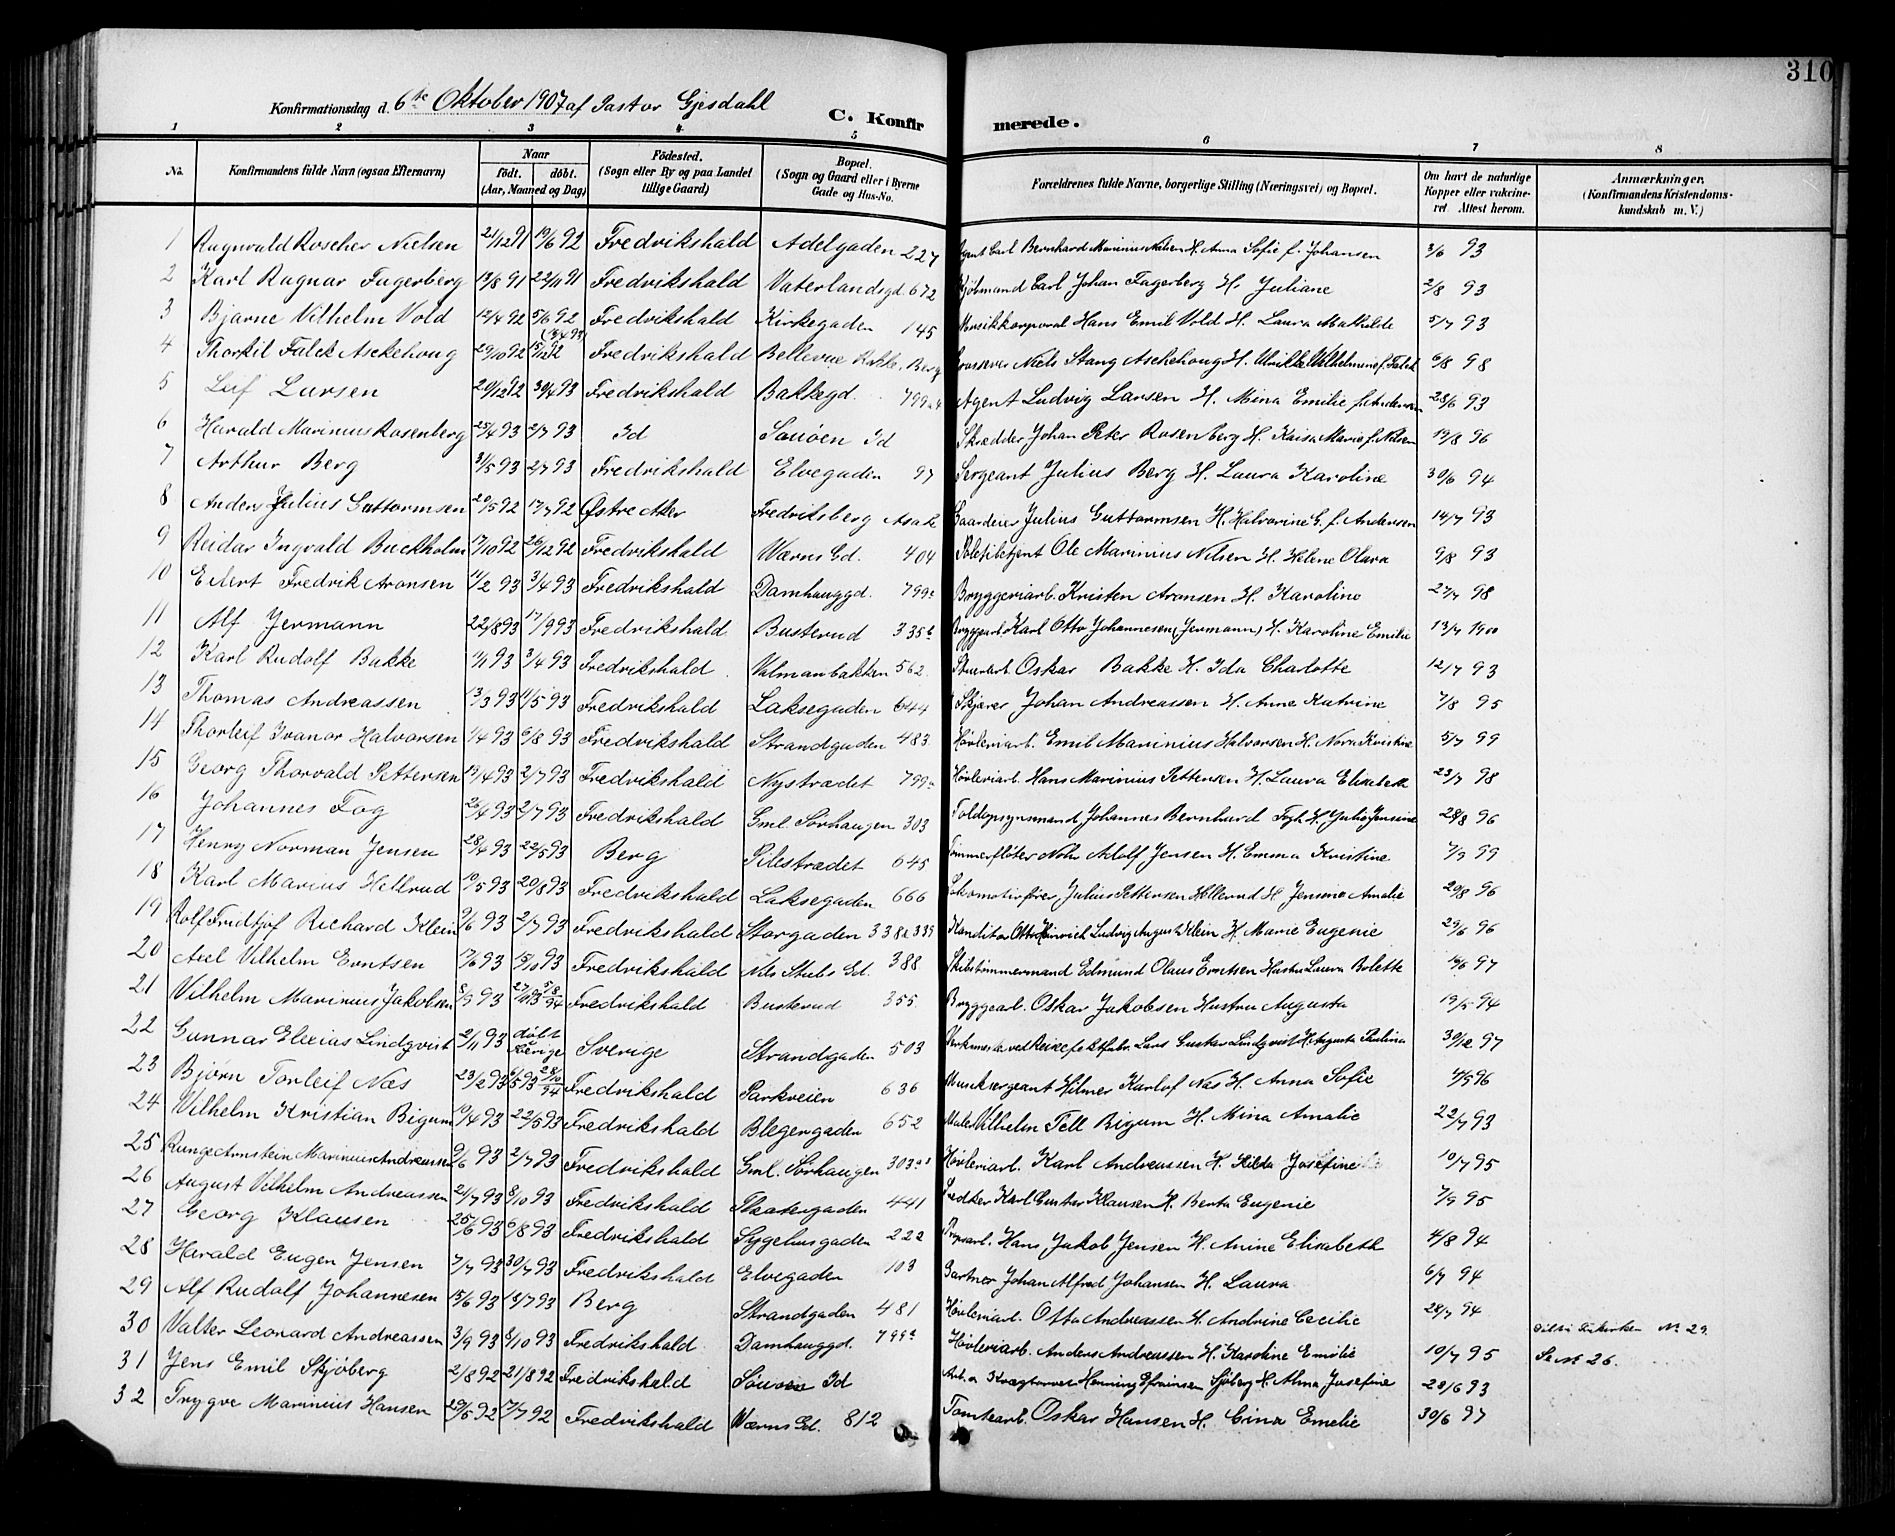 310
Konfirmationsdag d. 6te Oktober 1907 af Pastor Gjesdahl
C. Konfirmerede.
1 2 3 4 5 6 7 8
No. Konfirmandens fulde Navn (ogsaa Efternavn) Naar født. døbt. (Aar, Maaned og Dag) Fødested. (Sogn eller By og paa Landet tillige Gaard) Bopæl. (Sogn og Gaard eller i Byerne Gade og Hus-No. Forældrenes fulde Navne, borgerlige Stilling (Næringsvei) og Bopæl. Om havt de naturlige Kopper eller vakcineret. Attest herom. Anmærkninger. (Konfirmandens Kristendomskundskab m. V.)
1 Ragnvald Roscher Nielsen 21/12 91 19/6 92 Fredrikshald Adelgaden 227 Agent Carl Bernhard Marinius Nielsen H. Anna Sofie f. Johansen 3/6 93
2 Karl Ragnar Fagerberg 19/8 91 22/11 91 Fredrikshald Vaterlandsgd. 672 Carl Johan Fagerberg H. Juliane 2/8 93
3 Bjarne Vilhelm Vold 12/4 92 5/6 92 Fredrikshald Kirkegaden 145 Musikkorporal Hans Emil Vold H. Laura Mathilde 5/7 93
4 Thorkil Falck Aschehoug 29/10 92 15/12 92 Fredrikshald Bellevue Rokke, Berg Grosserer Niels Stang Aschehoug H. Ulrikke Wilhelmine f. Falck 6/8 98
5 Leif Larsen 20/12 92 30/4 93 Fredrikshald Bakkegd. 799 Agent Ludvig Larsen H. Mina Emilie f. Andersen 28/6 93
6 Harald Marinius Rosenberg 25/4 93 2/7 93 Id Sauøen Id Skrædder Johan Peter Rosenberg H. Kaisa Marie f. Nilsen 19/8 96
7 Arthur Berg 31/5 93 2/7 93 Fredrikshald Elvegaden 97 Sergeant Julius Berg H. Laura Karoline 30/6 94
8 Anders Julius Guttormsen 20/5 92 17/7 92 Østre Aker Fredriksberg Asak Gaardeier Julius Guttormsen H. Halvorine G. f. Andersen 14/7 93
9 Reidar Ingvald Buckholm 17/10 92 26/12 92 Fredrikshald Wærns Gd. 404 Politibetjent Ole Marinius Nilsen H. Helene Olava 9/8 93
10 Edert Fredrik Aronsen 11/2 93 3/4 93 Fredrikshald Damhauggd. 799 Bryggeriarb. Kristen Aronsen H. Karoline 27/7 98
11 Alf Jermann 22/8 93 17/9 93 Fredrikshald Busterud 335 b Bryggarb. Karl Otto Johannesen (Jermann) H. Karoline Emilie 13/7 1900
12 Karl Rudolf Bakke 11/1 93 3/4 93 Fredrikshald Valmanbakken 562 Oskar Bakke H. Ida Charlotte 12/7 93
13 Thomas Andreassen 13/3 93 11/5 93 Fredrikshald Laksegaden 644 Skjærer Johan Andreassen H. Anne Katrine 7/8 95
14 Thorleif Ivanor Halvorsen 1/4 93 6/8 93 Fredrikshald Strandgaden 483 Høvleriarb. Emil Marinius Halvorsen H. Nora Kristine 5/7 99
15 Georg Thorvald Pettersen 19/4 93 2/7 93 Fredrikshald Nystrædet 799 Høvleriarb. Hans Marinius Pettersen H. Laura Elisabeth 23/7 98
16 Johannes Fog 26/4 93 2/7 93 Fredrikshald Gml. Sørhaugen 303 Toldopsynsmand Johannes Bernhard Fogh H. Julie Jensine 28/8 96
17 Henry Norman Jensen 28/4 93 22/5 93 Berg Pilestrædet 645 Tømmerfløter Adolf Jensen H. Emma Kristine 7/9 99
18 Karl Marius Hellerud 10/5 93 20/8 93 Fredrikshald Laksegaden 666 Lokomotivfører Julius Pettersen Hellerud H. Jensine Amalie 20/8 96
19 Rolf Fridtjof Richard Klein 9/6 93 2/7 93 Fredrikshald Storgaden 338 339 Konditor Otto Heinrich Ludvig August Klein H. Marie Eugenie 29/6 96
20 Axel Vilhelm Erntsen 17/6 93 15/10 93 Fredrikshald Nils Stubs Gd. 388 Skibstømmermand Edmund Olaus Erntsen Hustru Laura Bolette 19/6 97
21 Vilhelm Marinius Jakobsen 8/9 93 Fredrikshald Busterud 355 Bryggearb. Oskar Jakobsen Hustru Augusta 19/5 94
22 Gunnar Elexius Lindqvist 2/11 93 døbt i Sverige Sverige Strandgaden 503 Lars Gustav Lindqvist H. Augusta Paulina 30/12 97
23 Bjørn Torleif Næs 23/2 93 Fredrikshald Parkveien 636 Musiksergeant Hilmer Karlof Næs H. Anna Sofie 4/5 96
24 Vilhelm Kristian Bigum 19/4 93 22/5 93 Fredrikshald Blegergaden 652 Maler Vilhelm Tell Bigum H. Mina Amalie 22/7 93
25 Runge Arnstein Marinius Andreassen 9/6 93 2/7 93 Fredrikshald Gml. Sørhaugen 303 Høvleriarb. Karl Andreassen H. Hilda Josefine 10/7 95
26 August Vilhelm Andreassen 21/7 93 8/10 93 Fredrikshald Theatergaden 441 Karl Gustav Klausen H. Berta Eugenie 7/9 95
27 Georg Klausen 25/6 93 6/8 93 Fredrikshald Sygehusgaden 222 Hans Jakob Jensen H. Anine Elisabeth 4/8 94
28 Harald Eugen Jensen 7/7 93 30/7 93 Fredrikshald Elvegaden 103 Gartner Johan Alfred Johansen H. Laura 6/7 94
29 Alf Rudolf Johannesen 15/6 93 16/7 93 Berg Strandgaden 481 Høvleriarb. Otto Andreassen H. Andrine Cecilie 28/7 94
30 Valter Leonard Andreassen 3/9 93 8/10 93 Fredrikshald Damhauggd. 799 Høvleriarb. Anders Andreassen H. Karoline Emilie 10/7 95 No 29.
31 Jens Emil Skjøberg 2/8 92 21/8 92 Fredrikshald Søuøen Id Henning Efraimsen Sjøberg H. Alma Josefine 28/6 93 Se No 26.
32 Trygve Marinius Hansen 29/5 92 7/7 92 Fredrikshald Wærns Gd. 812 Tomtearb. Oskar Hansen H. Gina Emelie 30/6 97